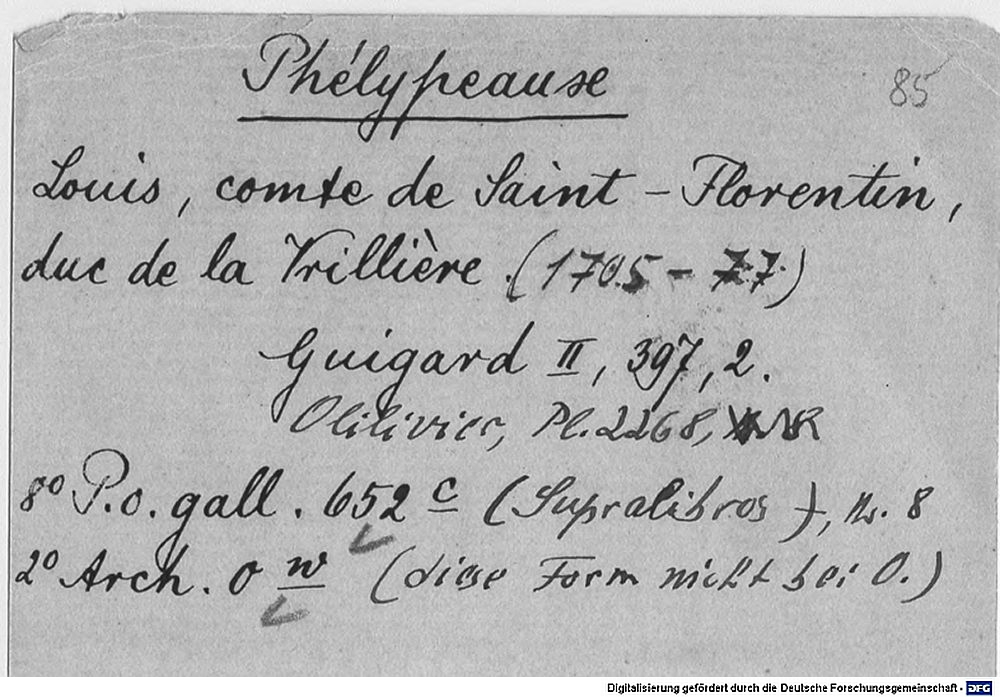 Phélypeause
85
Louis, comte de Saint-Florentin,
duc de la Vrillière. (1705-77)
Guigard II, 397, 2.
Olilivier, Pl. 2268,
8° P.o. gall. 652 c (Supralibros), n. 8
2° Arch. 0 w (diese Form nicht bei O.)
Digitalisierung gefördert durch die Deutsche Forschungsgemeinschaft - DFG